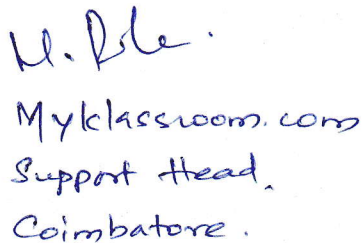 Myklassroom.com
Support Head.
Coimbatore.